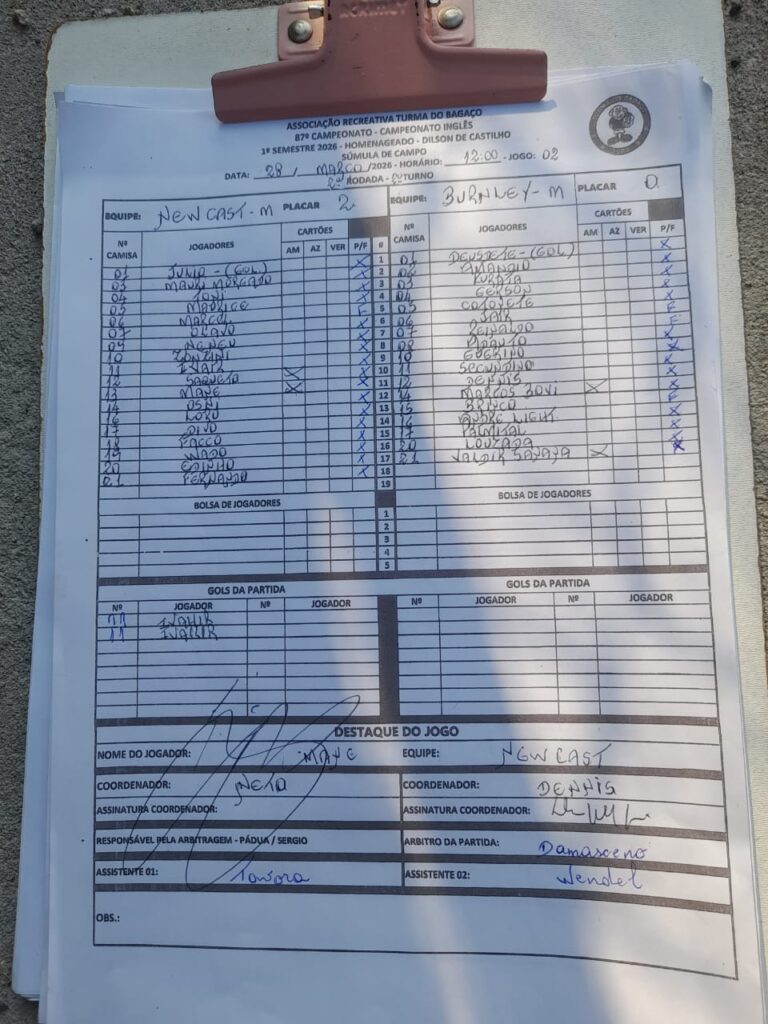 ASSOCIAÇÃO RECREATIVA TURMA DO BAGAÇO
87º CAMPEONATO - CAMPEONATO INGLÊS
1º SEMESTRE 2026 - HOMENAGEADO - DILSON DE CASTILHO
SÚMULA DE CAMPO
DATA: 28 / MARÇO /2026 - HORÁRIO: 12:00 - JOGO: 02
2ª RODADA - 2º TURNO
EQUIPE: NEWCAST-M PLACAR 2 EQUIPE: BURNLEY-M PLACAR 0
Nº CAMISA JOGADORES CARTÕES AM AZ VER P/F # Nº CAMISA JOGADORES CARTÕES AM AZ VER P/F
01 JUNIO - (GOL) X 1 01 DEUSDETE - (GOL) X
03 MAURI MORGADO X 2 02 X
04 TONI X 3 03 X
05 MAURICE X 4 04 GERSON X
06 MARCOL F 5 05 F
07 X 6 06 JAIR F
09 NENEU X 7 07 REINALDO X
10 X 8 08 X
11 X 9 10 GUERINO X
12 X X 10 11 SECUNDINO X
13 MANE X X 11 12 DENNIS X
14 OSNI X 12 14 MARCOS BOVI X F
16 LORO X 13 15 X
17 DIVO X 14 16 ANDRE LIGHT X
18 FACCO X 15 17 PALMITAL X
19 WADO X 16 20 LOUZADA X
20 EDINHO X 17 21 VALDIR X
21 FERNANDO X 18
19
BOLSA DE JOGADORES BOLSA DE JOGADORES
1
2
3
4
5
GOLS DA PARTIDA GOLS DA PARTIDA
Nº JOGADOR Nº JOGADOR Nº JOGADOR Nº JOGADOR
11 IVAHIR
11 IVAHIR
DESTAQUE DO JOGO
NOME DO JOGADOR: MANE EQUIPE: NEWCAST
COORDENADOR: NETO COORDENADOR: DENNIS
ASSINATURA COORDENADOR: ASSINATURA COORDENADOR:
RESPONSÁVEL PELA ARBITRAGEM - PÁDUA / SERGIO ARBITRO DA PARTIDA: Damasceno
ASSISTENTE 01: Tavora ASSISTENTE 02: Wendel
OBS.: